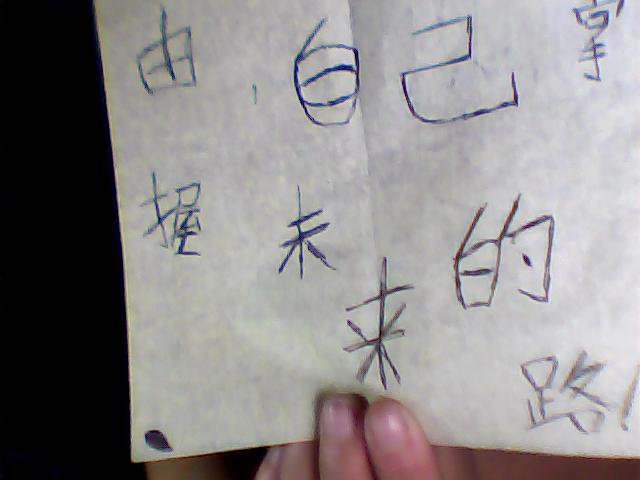 由自己掌
握未来的
路